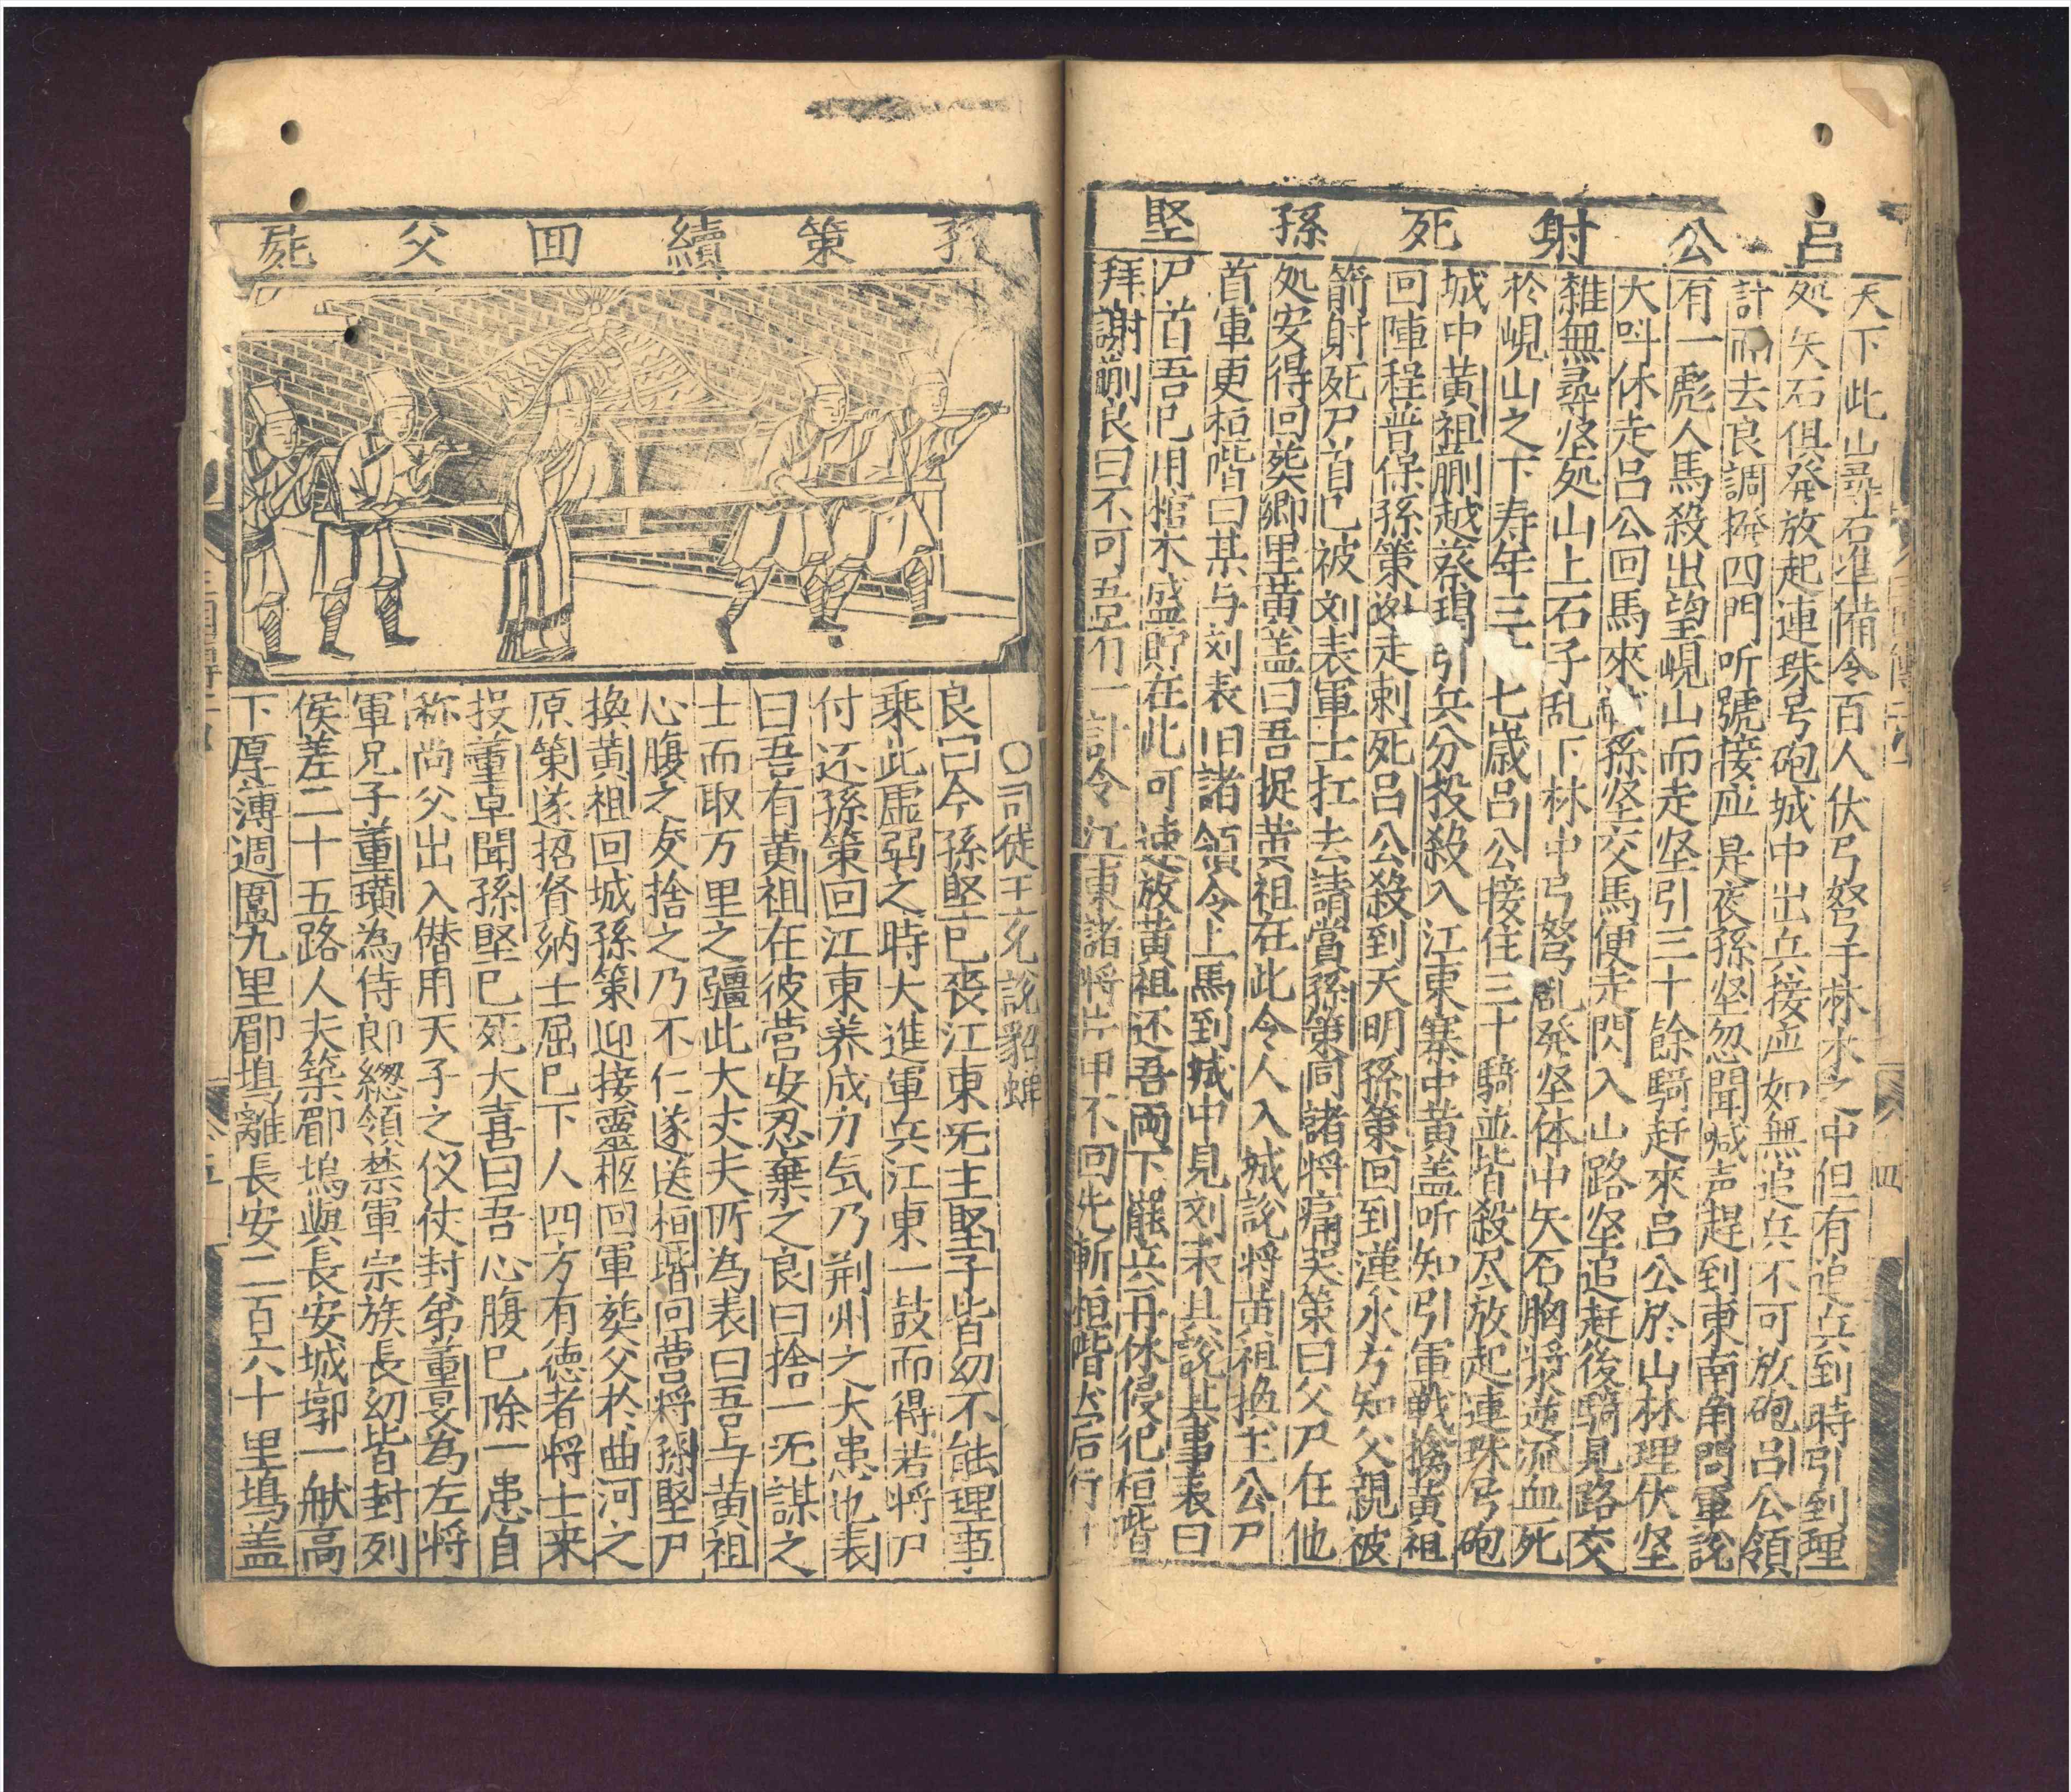 呂公射死孫堅
天下此山尋石準備令百人伏弓弩子林木之中但有追兵到時引到埋
処矢石俱発放起連珠号砲城中出兵接应如無追兵不可放砲吕公領
計而去良調撥四門听號接应是夜孫坚忽聞喊声趕到東南角問軍說
有一彪人馬殺出望峴山而走坚引三十餘騎赶來呂公於山林理伏坚
大呌休走呂公回馬來孫坚交馬便走閃入山路坚追赶後騎見路交
雜無尋坚処山上石子乱下林中弓弩乱発坚体中矢石胸漿逆流血死
於峴山之下寿年三十七歲呂公接住三十騎並皆殺尽放起連珠号砲
城中黄祖蒯越蔡瑁引兵分投殺入江東寨中黄盖听知引軍戰擒黄祖
回陣程普保孫策逃走刺死吕公殺到天明孫策回到漢水方知父親被
箭射死尸首已被刘表軍士扛去請賞孫策同諸将痛哭策曰父尸在他
処安得回葵鄉里黄盖曰吾捉黄祖在此令人入城說将黄祖換主公尸
首軍吏桓階曰某与刘表旧諸領令上馬到城中見刘表具說其事表曰
尸首吾已用棺木盛貯在此可速放黄祖还吾両下罷兵再休侵犯桓階
拜謝蒯良曰不可吾有一計令江東諸将片甲不回先斬桓階然后行
孫策續回父屍
〇司徒王允說貂蟬
良曰今孫堅已喪江東旡主堅子皆幼不能理事
乗此虛弱之時大進軍兵江東一鼓而得若将尸
付还孫策回江東养成力気乃荆州之大患也表
曰吾有黄祖在彼营安忍棄之良曰捨一旡謀之
士而取万里之疆此大丈夫所為表曰吾与黄祖
心腹之友捨之乃不仁遂送桓階回营将孫堅尸
換黄祖回城孫策迎接靈柩回軍葵父於曲河之
原策遂招脊納士屈已下人四方有德者将士来
投董卓聞孫堅已死大喜曰吾心腹已除一患自
称尚父出入僣用天子之仪仗封弟董旻為左将
軍兄子董璜為侍郎總領禁軍宗族長幼皆封列
侯差二十五路人夫築郿塢與長安城墎一般高
下厚薄週圍九里郿塢離長安二百六十里塢盖